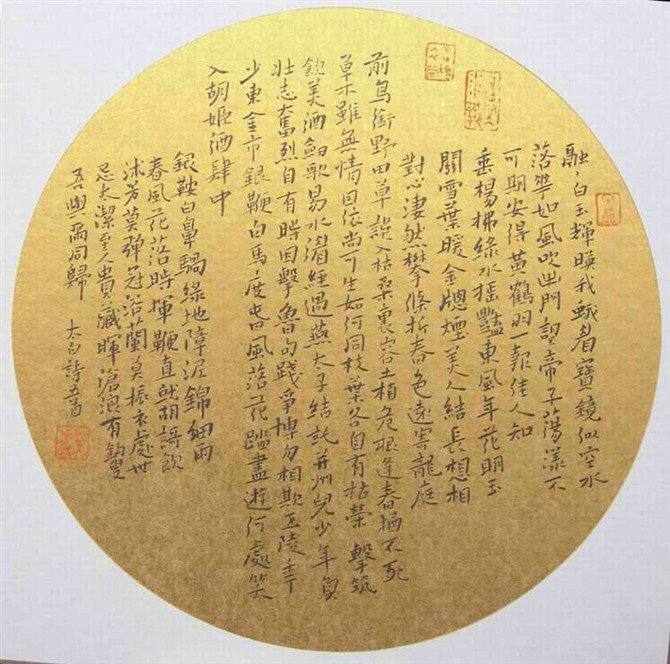 融〻白玉輝暎我蛾眉寶鏡似空水
落花如風吹出門望帝子蕩漾不
可期安得黃鶴羽一報佳人知
垂楊拂綠水搖豔東風年花明玉
關雪葉暖金牕煙美人結長想相
對心淒然攀條折春色遠寄龍庭
前鳥銜野田草誤入枯桑裏客土植危根逢春猶不死
草木雖無情因依尚可生如何同枝葉各自有枯榮 擊筑
飲美酒劍歌易水湄經過燕太子結託并州兒少年負
壯志奮烈自有時因擊魯句踐爭博勿相欺五陵年
少東金市銀鞍白馬度春風落花踏盡遊何處笑
入胡姬酒肆中
銀鞍白鼻騧綠地障泥錦細雨
春風花落時揮鞭直就胡姬飲
沐芳莫彈冠浴蘭莫振衣處世
忌太潔至人貴藏暉滄浪有釣叟
吾與爾同歸 太白詩五首